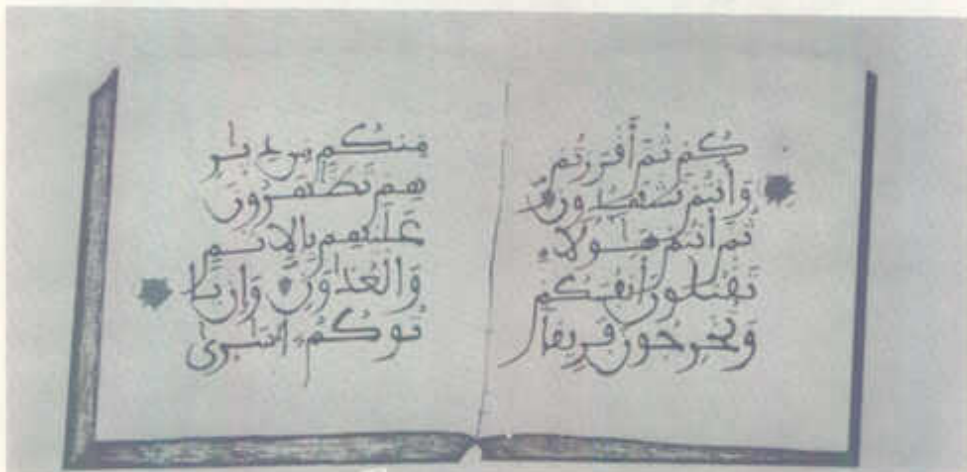 كُمْ ثُمَّ أَقْرَرْتُمْ
وَأَنتُمْ تَشْهَدُونَ
ثُمَّ أَنتُمْ هَٰؤُلَاءِ
تَقْتُلُونَ أَنفُسَكُمْ
وَتُخْرِجُونَ فَرِيقًا
مِنكُم مِن دِيَٰرِ
هِمْ تَظَّٰهَرُونَ
عَلَيْهِم بِالْإِثْمِ
وَالْعُدْوَٰنِ وَإِن يَا
تُوكُمْ أُسَٰرَىٰ